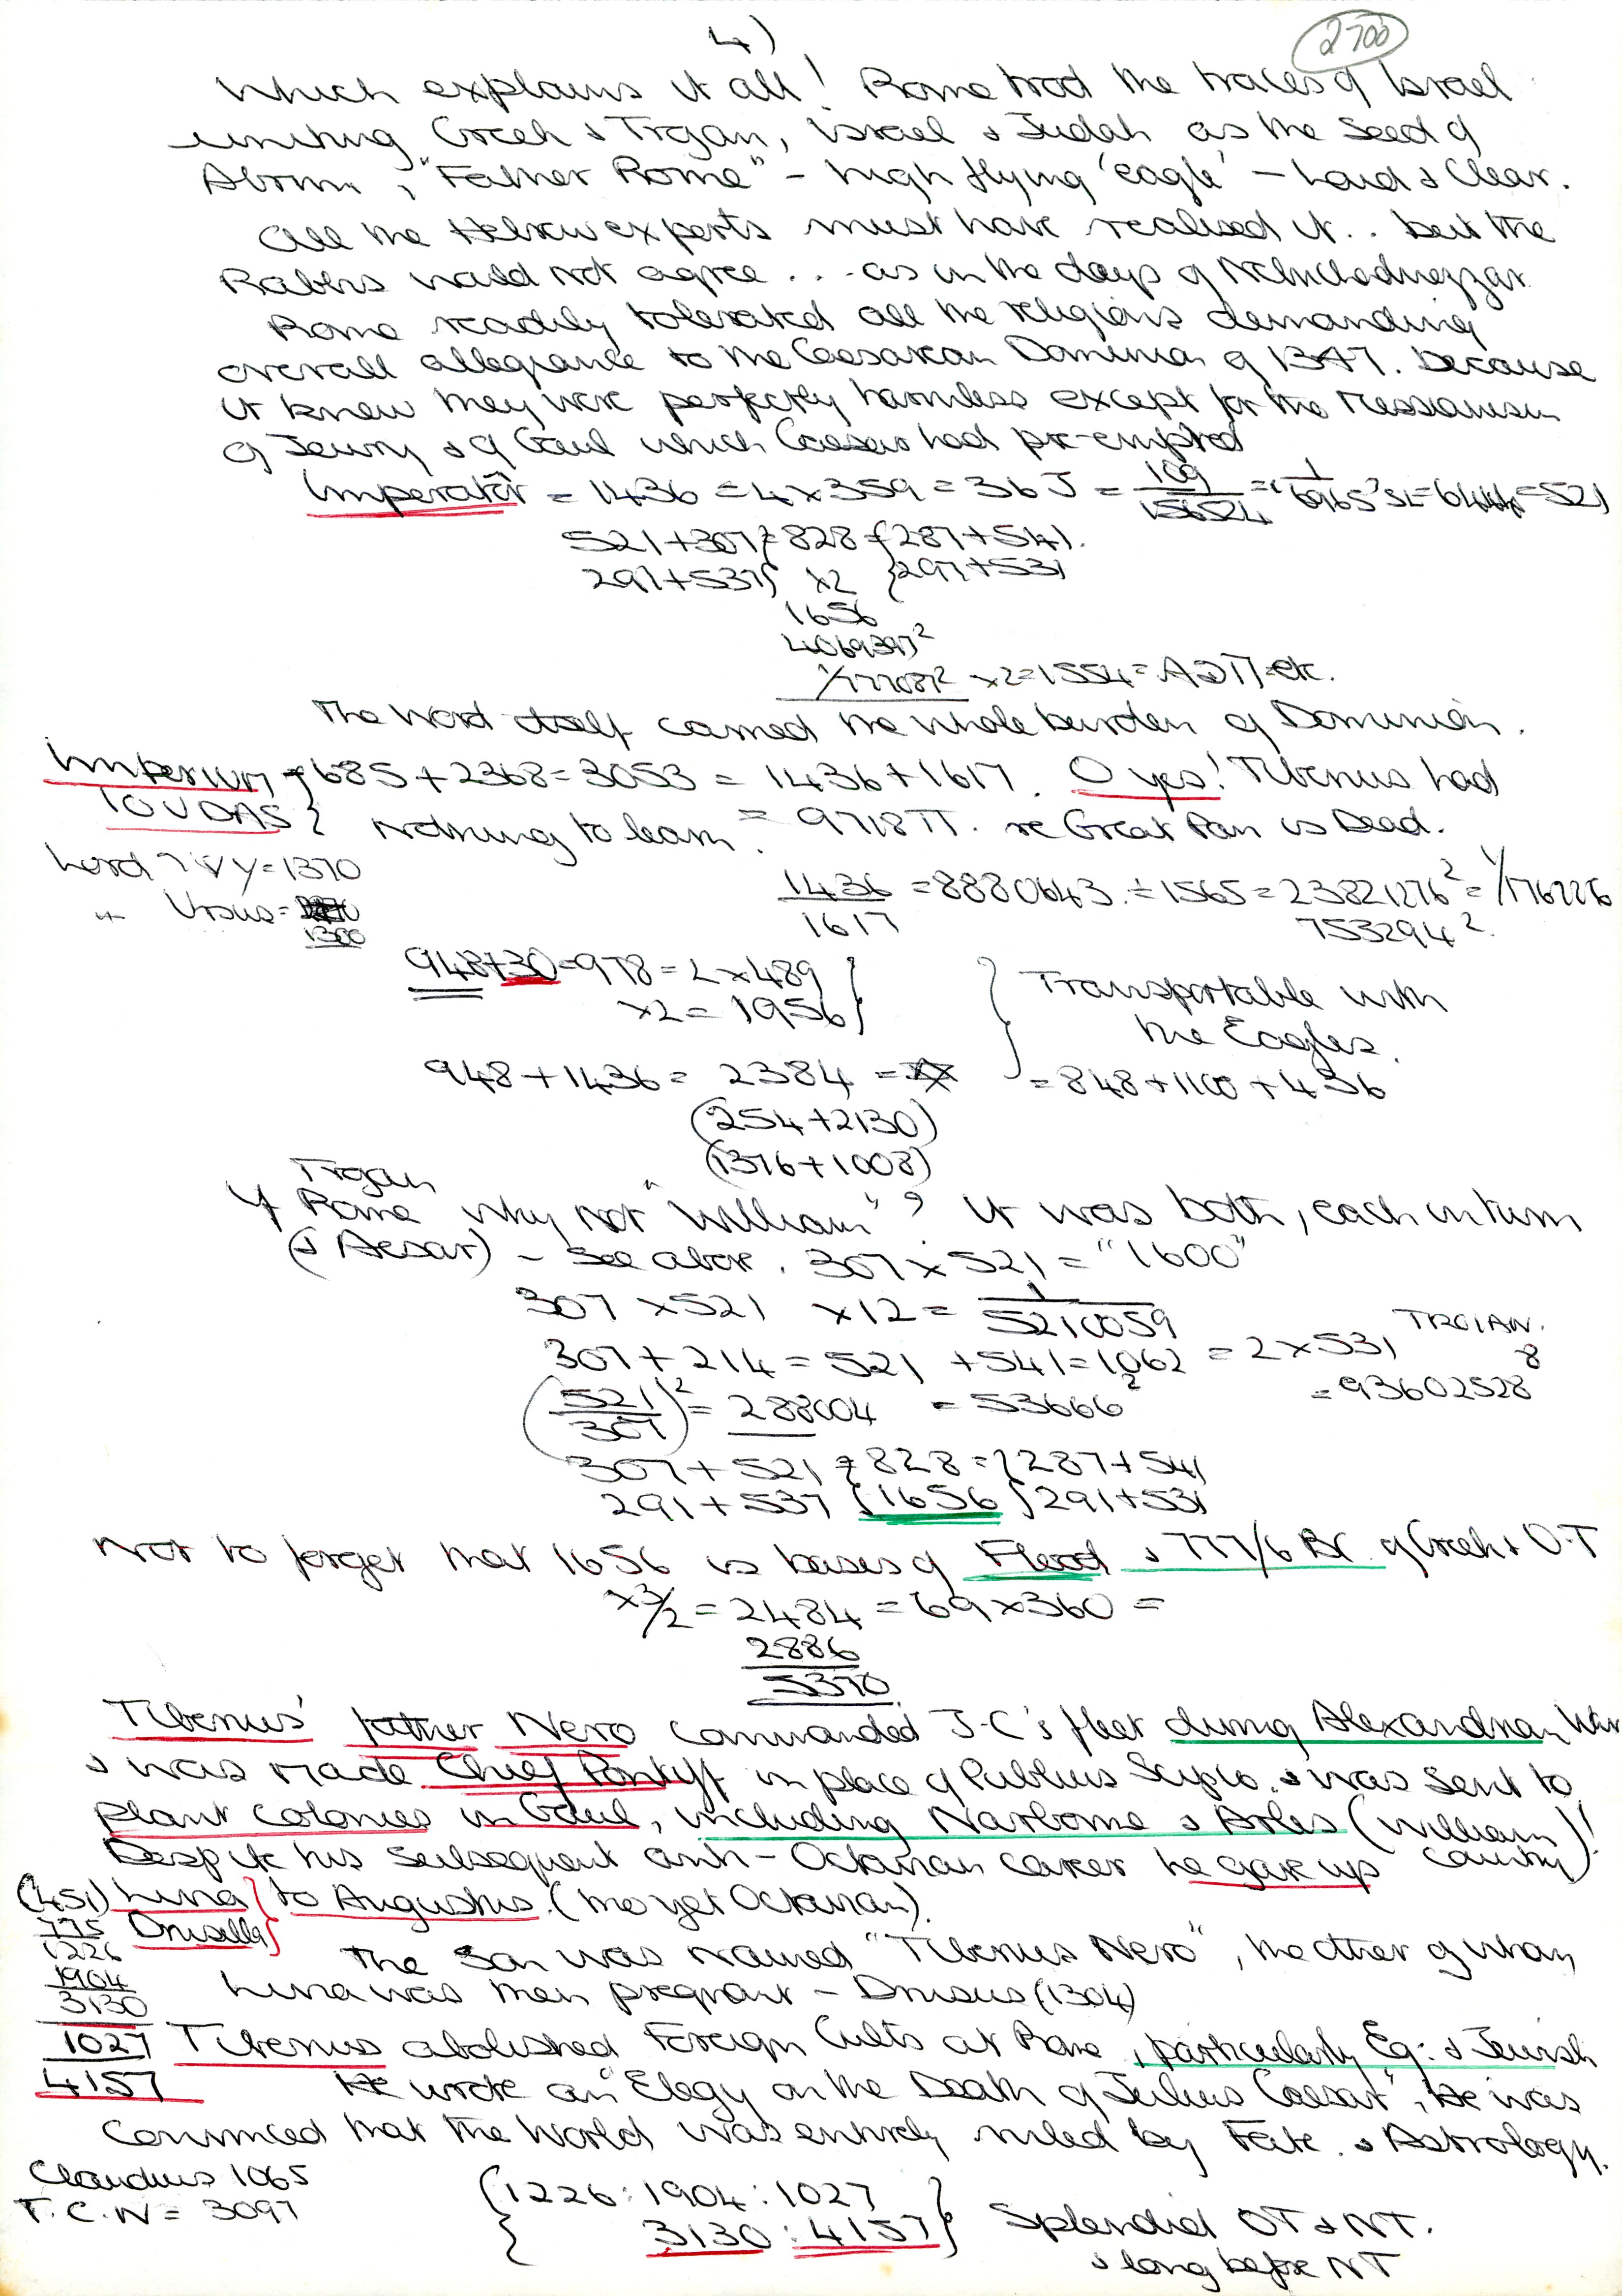 4)
2700
Which explains it all! Rome trod the traces of Israel
uniting Greek & Trojan, Israel & Judah as the Seed of
Abram, "Father Rome" - high flying 'eagle' - Loud & Clear.
All the Hebrew experts must have realised it.. but the
Rabbis would not agree ... as in the days of Nebuchadnezzar
Rome readily tolerated all the religions demanding
overall allegiance to the Caesarean Dominion of 1347. because
it knew they were perfectly harmless except for the Messianism
of Jewry & of Gaul which Caesar had pre-empted
Imperator = 1436 = 4x359 = 36 J = 109/15652 = '1/6965' SL = 6444 = 521
521+307} = 828 = {287+541.
291+537} x2 {297+531
1656
4069397²
1/777087² x2=1554= etc.
The Word itself carried the whole burden of Dominion.
Imperium } 685 + 2368 = 3053 = 1436+1617. O yes! Tiberius had
IOUDAS } Nothing to learn. = 9718 π. re Great Pan is Dead.
Lord = 1370
" Ursus = 1300
1436/1617 = 8880643. ÷ 1565 = 23821276² = 1/176226
753294².
948+30=978=2x489 }
x2 = 1956 }
} Transportable with
the Eagles.
948+1436 = 2384 = = 848+1100+436
(254+2130)
(1376+1008)
Trojan
If Rome why not "William"? It was both, each in turn
(& Aesar) - See above. 307x521 = "1600"
307 x521 x12 = 1/5210059
307+214=521 +541=1062 = 2x531 TROIAN.
(521/307)² = 288004 = 53666² = 93602528⁸
307+521 } 828 = {287+541
291+537 {1656} 291+531
Not to forget that 1656 is basis of Flood & 777/6 BC of Greek & O.T
x3/2 = 2484 = 69x360 =
2886
5370.
Tiberius' father Nero commanded J-C's fleet during Alexandrian War
& was made Chief Pontiff in place of Publius Scipio. & was sent to
plant colonies in Gaul, including Narbonne & Arles (William
Country)!
Despite his subsequent anti-Octavian career he gave up
(451) Livia } to Augustus. (then yet Octavian).
775 Drusilla }
1226
1904
3130
1027
4157
The Son was named "Tiberius Nero", the other of whom
Livia was then pregnant - Drusus (1304)
Tiberius abolished Foreign Cults at Rome, particularly Eg: & Jewish
He wrote an "Elegy on the Death of Julius Caesar", He was
convinced that the World was entirely ruled by Fate. & Astrology.
Claudius 1065
T.C.N = 3097
{1226:1904:1027
{ 3130:4157} Splendid OT & NT.
& long before NT